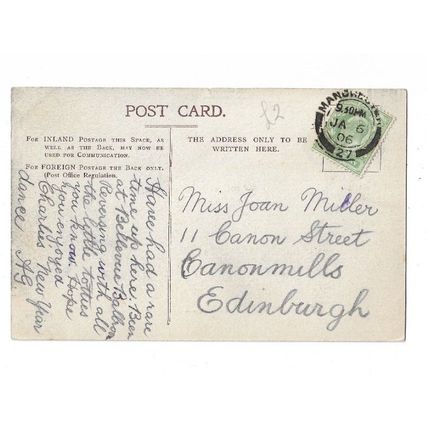 POST CARD.
£2
MANCHESTER
9.30PM
JA 6
06
27
FOR INLAND POSTAGE THIS SPACE, AS
WELL AS THE BACK, MAY NOW BE
USED FOR COMMUNICATION.
FOR FOREIGN POSTAGE THE BACK ONLY.
(Post Office Regulation.)
THE ADDRESS ONLY TO BE
WRITTEN HERE.
Have had a rare
time up here. Been
at Bellevue Ballroom
Reversing with all
the little totties
you know. Hope
you enjoyed
Charlies New Year
dance. AG.
Miss Joan Miller
11 Canon Street
Canonmills
Edinburgh